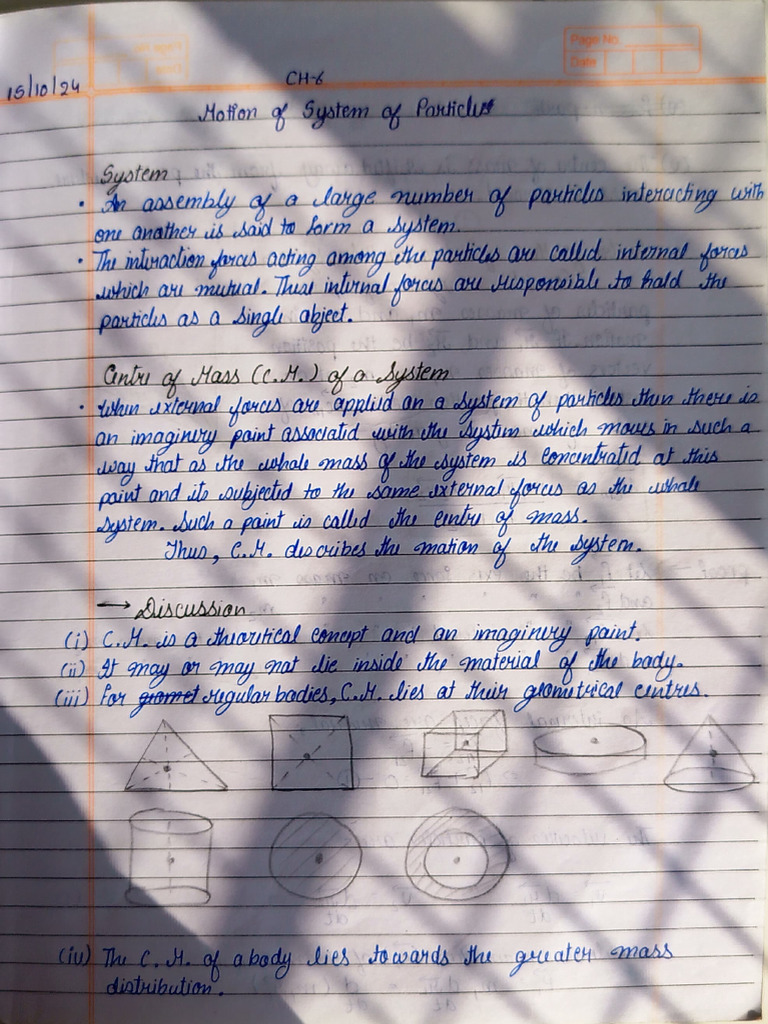 Page No.
Date
15/10/24
CH-6
Motion of System of Particles
System
• An assembly of a large number of particles interacting with
one another is said to form a system.
• The interaction forces acting among the particles are called internal forces
which are mutual. These internal forces are responsible to hold the
particles as a single object.
Centre of Mass (C.M.) of a System
• When external forces are applied on a system of particles then there is
an imaginery point associated with the system which moves in such a
way that as the whole mass of the system is concentrated at this
point and its subjected to the same external forces as the whole
system. Such a point is called the centre of mass.
Thus, C.M. describes the motion of the system.
→ Discussion
(i) C.M. is a theoritical concept and an imaginery point.
(ii) It may or may not lie inside the material of the body.
(iii) For regular bodies, C.M. lies at their geometrical centres.
(iv) The C.M. of a body lies towards the greater mass
distribution.